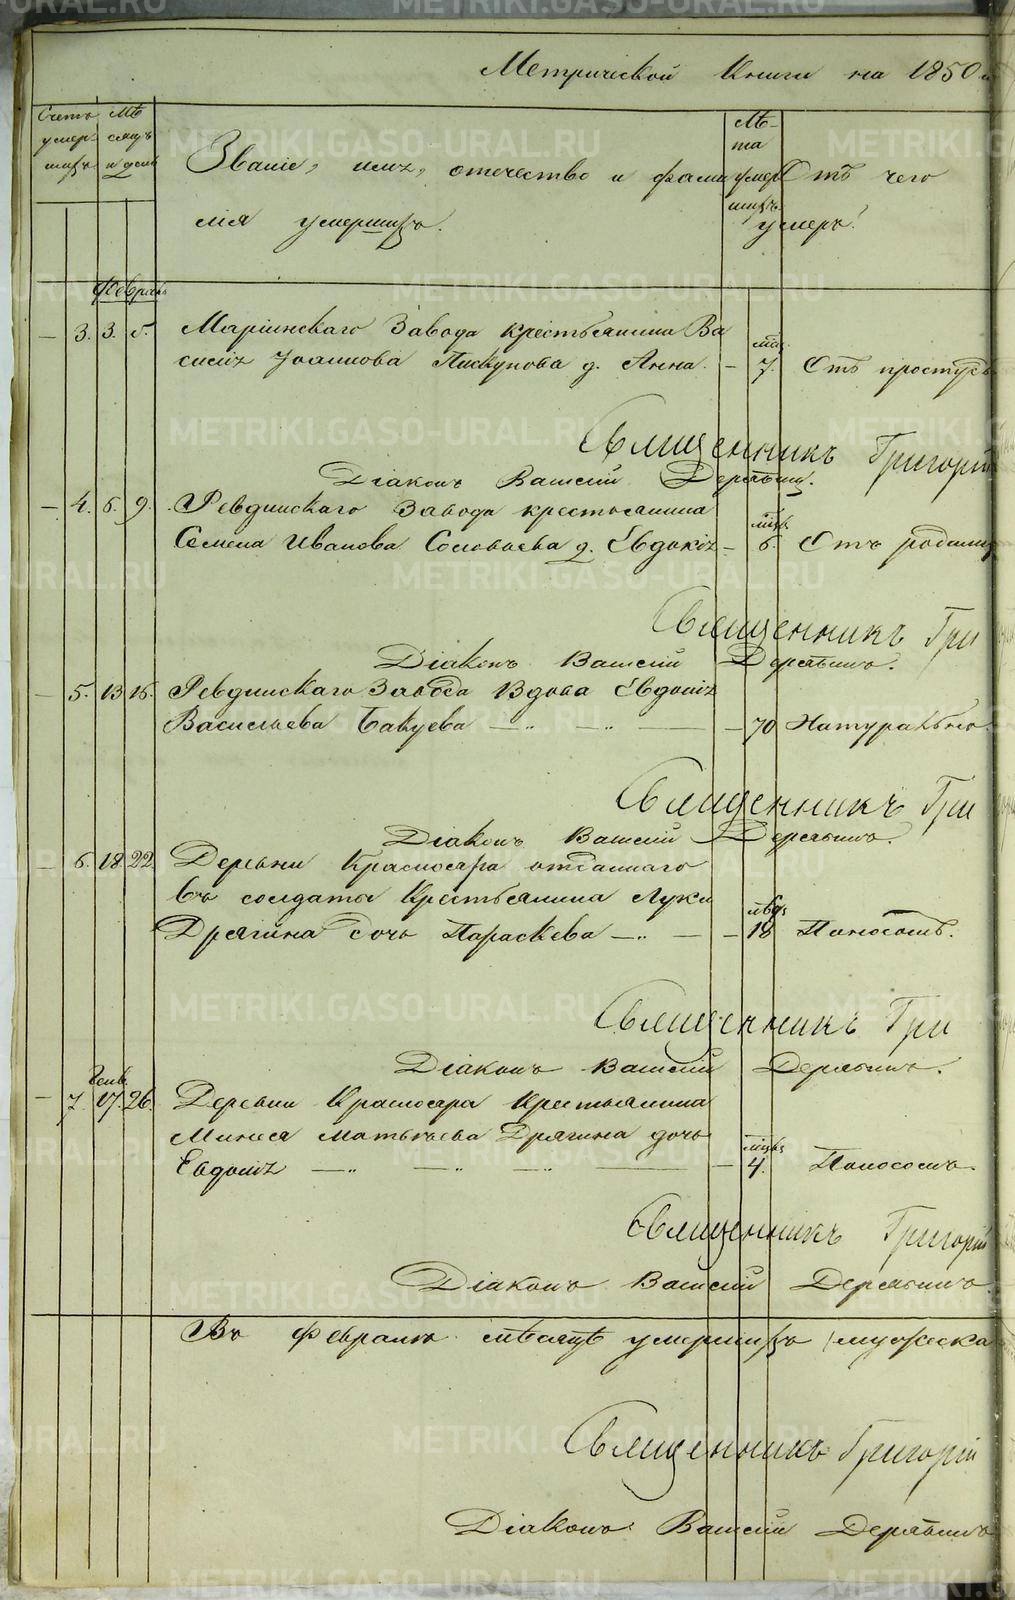 Метрической Книги на 1850
Счетъ умер-шихъ
Мѣсяцъ и день
Званіе, имя, отечество и фами
лія умершихъ.
Лѣ-та умершихъ
Отъ чего
умеръ?
Февраль
3. 3. 5. Маріинскаго Завода крестьянина Ва
силія Іоаннова Пискунова д. Анна. — мѣц. 7. Отъ простуды
Священникъ Григорій
Діаконъ Василій Дерябинъ.
4. 6. 9. Ревдинскаго Завода крестьянина
Семена Иванова Соловьева д. Евдокія — мцв. 6. Отъ родимц
Священникъ Гри
Діаконъ Василій Дерябинъ.
5. 13 16. Ревдинскаго Завода Вдова Евдокія
Васильева Бакуева — 70 Натурально.
Священникъ Гри
Діаконъ Василій Дерябинъ.
6. 18 22 Деревни Краснояра отданнаго
въ солдаты Крестьянина Луки
Дрягина дочь Параскева — 18 Поносомъ.
Священникъ Гри
Діаконъ Василій Дерябинъ.
Генв.
7. 17. 26. Деревни Краснояра Крестьянина
Матвѣева Дрягина дочь
Евдокія — мцв 4. Поносомъ.
Священникъ Григорій
Діаконъ Василій Дерябинъ.
Въ Февралѣ мѣсяцѣ умершихъ мужеска
Священникъ Григорій
Діаконъ Василій Дерябинъ
METRIKI.GASO-URAL.RU